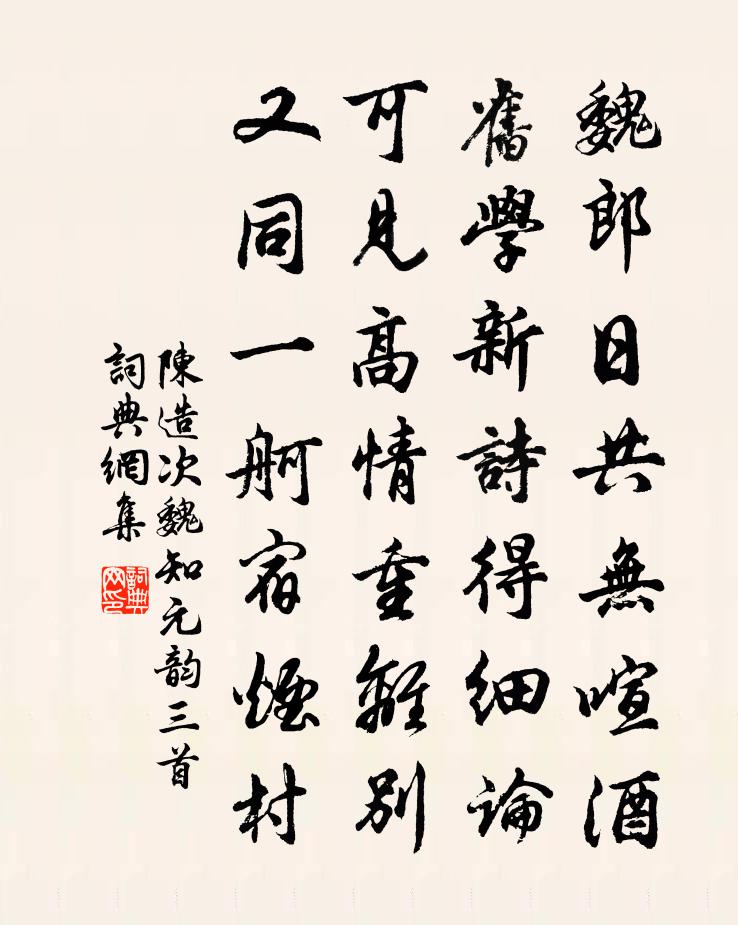 魏郎日共無喧酒
舊學新詩得細論
可見高情重離別
又同一舸宿煙村
陳造次魏知元韵三首
詞典網集
詞典网印